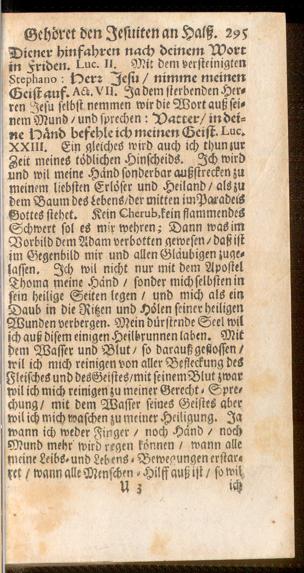 Gehöret den Jesuiten an Halß. 295
Diener hinfahren nach deinem Wort
in Friden. Luc. II. Mit dem versteinigten
Stephano : Herr Jesu / nimme meinen
Geist auf. Act. VII. Ja dem sterbenden Her-
ren Jesu selbst nemmen wir die Wort auß sei-
nem Mund / und sprechen : Vatter / in dei-
ne Händ befehle ich meinen Geist. Luc.
XXIII. Ein gleiches wird auch ich thun zur
Zeit meines tödlichen Hinscheids. Ich wird
und wil meine Händ sonderbar außstrecken zu
meinem liebsten Erlöser und Heiland / als zu
dem Baum des Lebens / der mitten im Paradeis
Gottes stehet. Kein Cherub, kein flammendes
Schwert sol es mir wehren; Dann was im
Vorbild dem Adam verbotten gewesen / daß ist
im Gegenbild mir und allen Gläubigen zuge-
lassen. Ich wil nicht nur mit dem Apostel
Thoma meine Händ / sonder mich selbsten in
sein heilige Seiten legen / und mich als ein
Daub in die Ritzen und Hölen seiner heiligen
Wunden verbergen. Mein dürstende Seel wil
ich auß disem einigen Heilbrunnen laben. Mit
dem Wasser und Blut / so darauß geflossen /
wil ich mich reinigen von aller Befleckung des
Fleisches und des Geistes / mit seinem Blut zwar
wil ich mich reinigen zu meiner Gerecht-Spre-
chung / mit dem Wasser seines Geistes aber
wil ich mich waschen zu meiner Heiligung. Ja
wann ich weder Finger / noch Händ / noch
Mund mehr wird regen können / wann alle
meine Leibs- und Lebens-Bewegungen erstar-
ret / wann alle Menschen-Hilff auß ist / so wil
U 3 ich